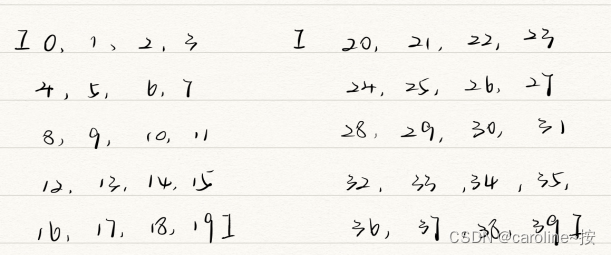 [ 0, 1, 2, 3
4, 5, 6, 7
8, 9, 10, 11
12, 13, 14, 15
16, 17, 18, 19 ]
[ 20, 21, 22, 23
24, 25, 26, 27
28, 29, 30, 31
32, 33, 34, 35,
36, 37, 38, 39 ]
CSDN @caroline~按